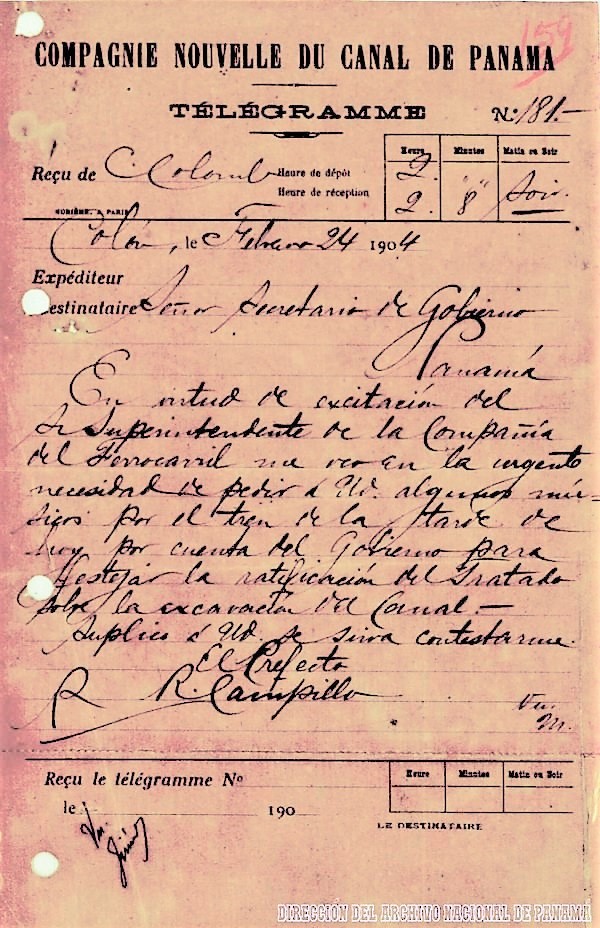 159
COMPAGNIE NOUVELLE DU CANAL DE PANAMA
TÉLÉGRAMME Nº 181.-
Heure Minutes Matin ou Soir
Reçu de Heure de dépôt 2. " Soir.
Heure de réception 2. 8
A PARIS
Colón, le Febrero 24 1904
Expéditeur
Destinataire Señor Secretario de Gobierno
Panamá
En virtud de excitación del
Sr Superintendente de la Compañía
del Ferrocarril me veo en la urgente
necesidad de pedir á Ud. algunos mú-
sicos por el tren de la tarde de
hoy por cuenta del Gobierno para
festejar la ratificación del Tratado
sobre la excavación del Canal.-
Suplico á Ud. se sirva contestarme.
El Prefecto
R. Campillo
Reçu le télégramme Nº
Heure Minutes Matin ou Soir
le 190
LE DESTINATAIRE
DIRECCIÓN DEL ARCHIVO NACIONAL DE PANAMÁ